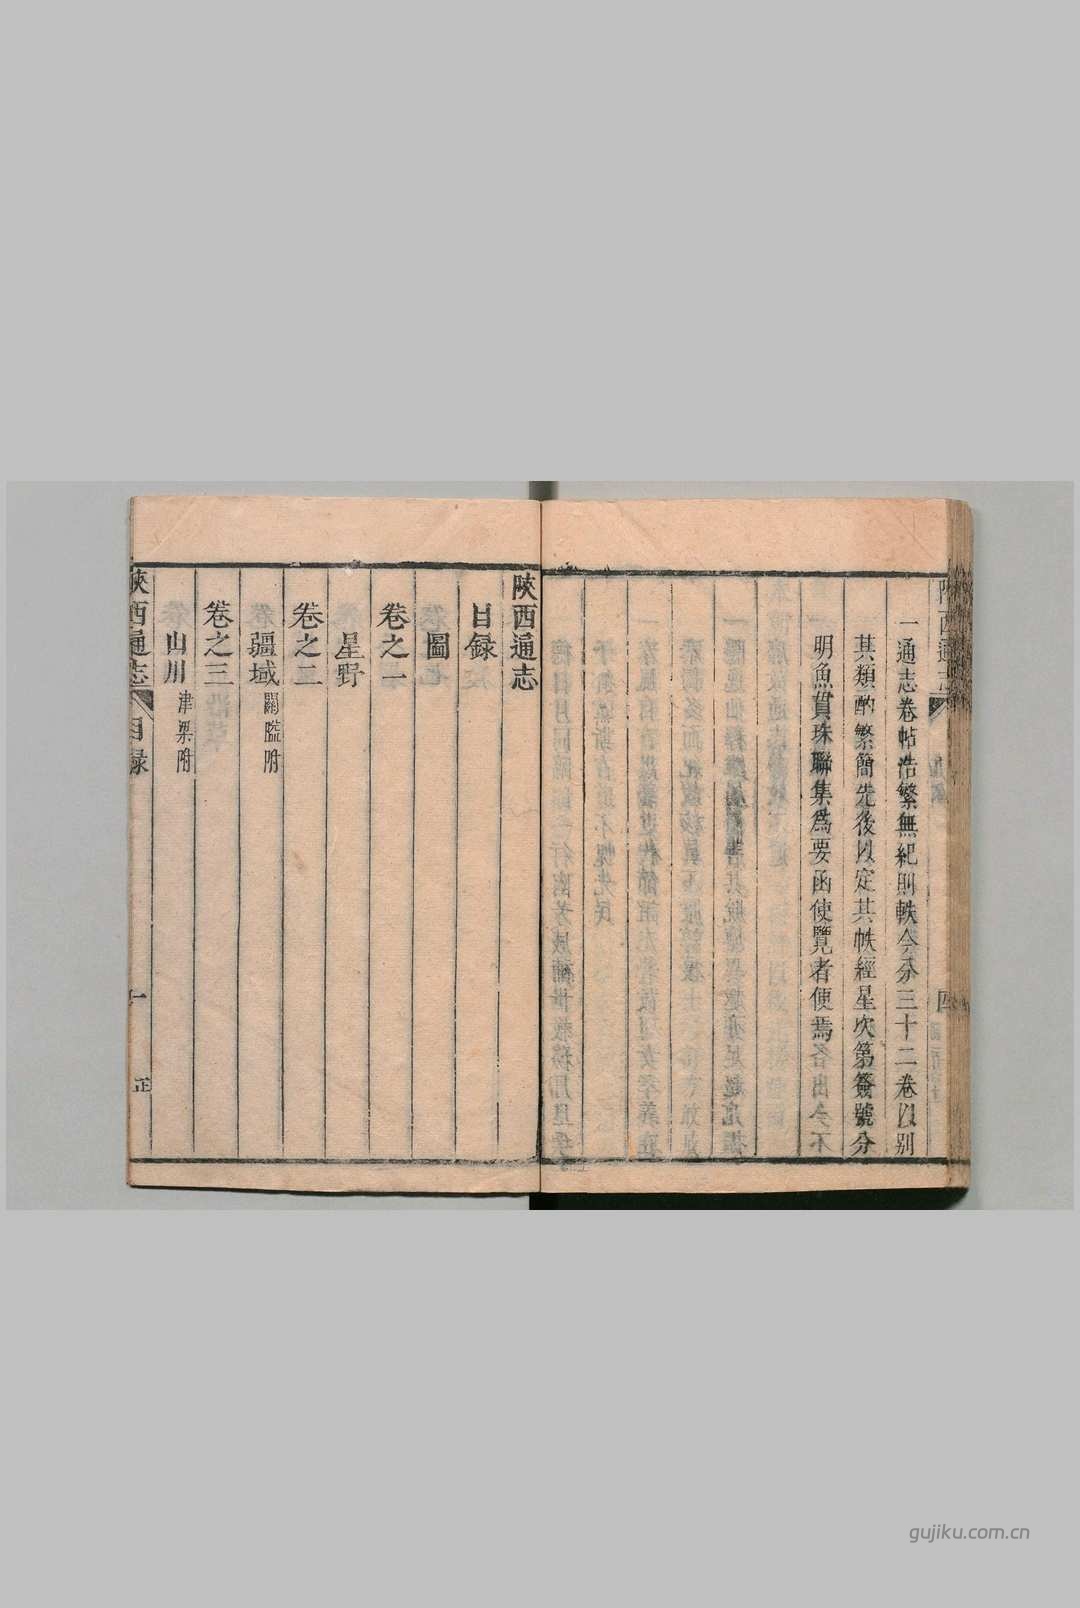 一通志卷帖浩繁無紀則軼今分三十二卷以别
其類酌繁簡先後以定其帙經星次第簽號分
明魚貫珠聯集爲要函使覽者便焉
陝西通志
目録
圖
卷之一
星野
卷之二
疆域 關隘附
卷之三
山川 津梁附
陝西通志 目録 一
gujiku.com.cn